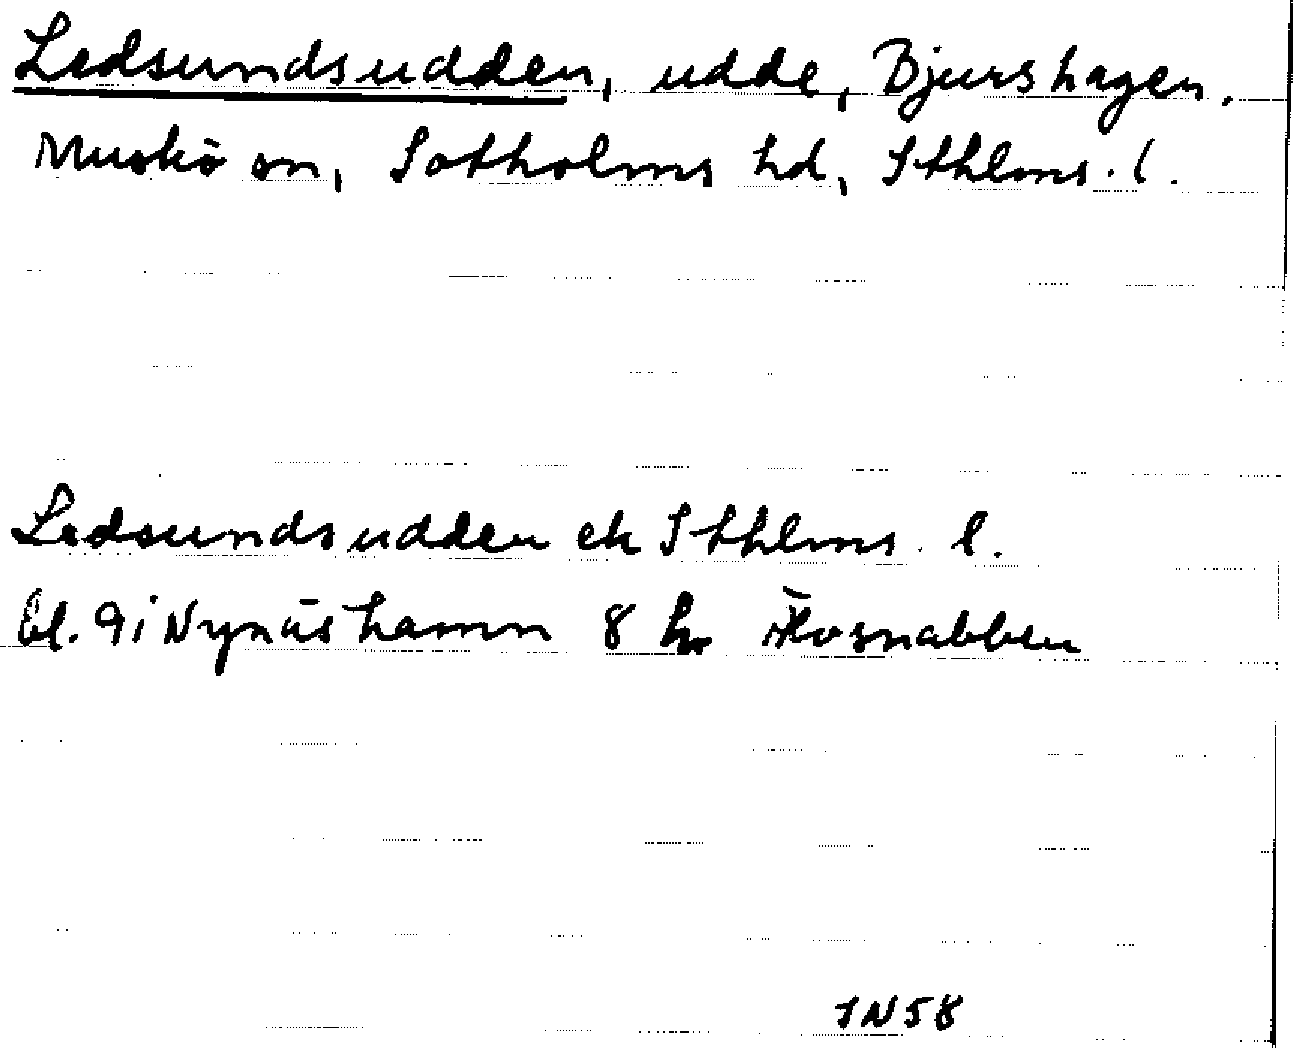 Ledsundsudden, udde, Bjurshagen.
Muskö sn, Sotholms hd, Sthlms. l.
Ledsundsudden ek Sthlms. l.
bl. 9i Nynäshamn 8 h Älvsnabben
IN58